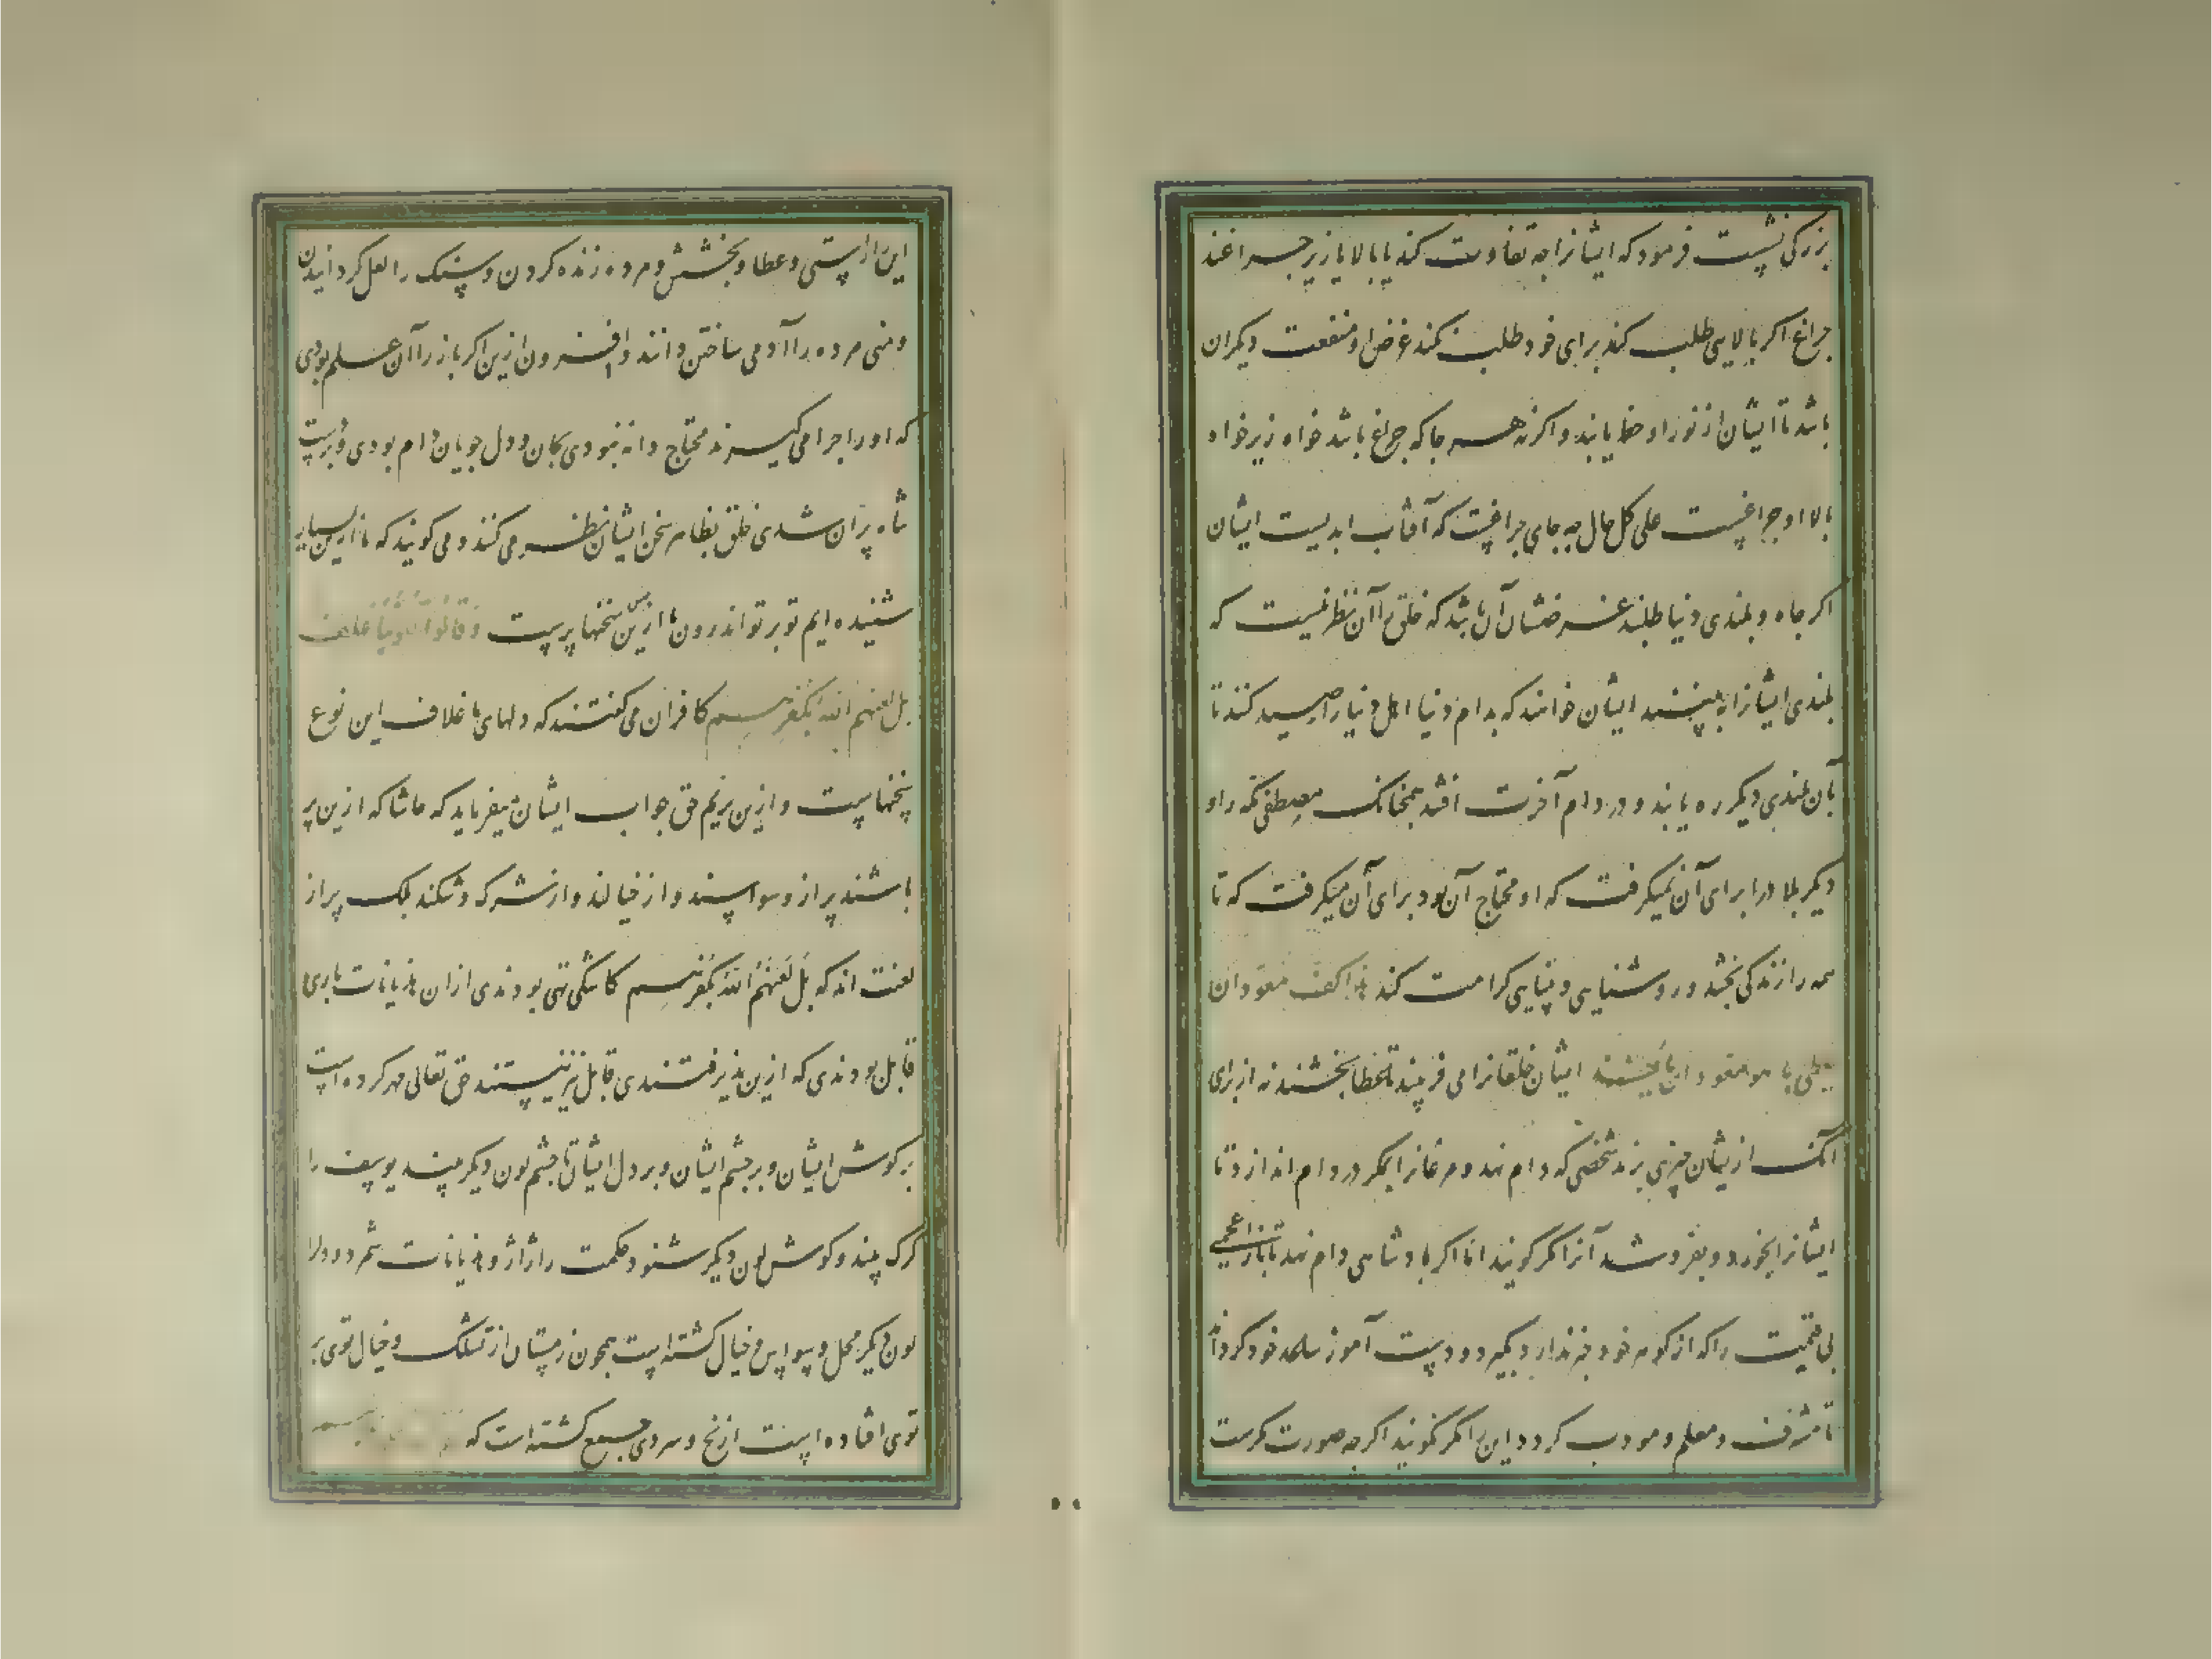 بزرکی نشست فرمود که ایشانرا چه تفاوت کند یا بالا یا زیر چراغند
چراغ اکر بالایی طلب کند برای خود طلب نکند غرض او منفعت دیکران
باشد تا ایشان از نور او حظ یابند و اکرنه هر جا که چراغ باشد خواه زیر خواه
بالا او چراغست علی کل حال چه جای چراغست که آفتاب ابدیست ایشان
اکر جاه و بلندی دنیا طلبند غرضشان آن باشد که خلق را آن نظر نیست که
بلندی ایشانرا ببینند ایشان خواهند که بدام دنیا اهل دنیا را صید کنند تا
بآن بلندی دیکر ره یابند و در دام آخرت افتند همچنانک مصطفی مکه را و
دیکر بلاد را برای آن نمیکرفت که او محتاج آن بود برای آن میکرفت که تا
همه را زندکی بخشد و روشنایی و بینایی کرامت کند هذا کف معود ان
یعطی ما هو معود ان یاخذ ایشان خلقانرا می فریبند تا عطا بخشند نه از برای
آنک از ایشان چیزی برند شخصی که دام نهد و مرغانرا بمکر در دام اندازد تا
ایشانرا بخورد و بفروشد آنرا مکر کویند اما اکر پادشاهی دام نهد تا باز اعجمی
بی قیمت را که از کوهر خود خبر ندارد بکیرد و دست آموز ساعد خود کرداند
تا مشرف و معلم و مودب کردد این را مکر نکویند اکرچه صورت مکرست
این را راستی و عطا و بخشش و مرده زنده کردن و سنک را لعل کردانیدن
و منی مرده را آدمی ساختن دانند و افزون ازین اکر باز را آن علم بودی
که او را چرا می کیرند محتاج دانه نبودی بجان و دل جویان دام بودی و بر دست
شاه پران شدی خلق بظاهر سخن ایشان نظر می کنند و می کویند که ما ازین بسیار
شنیده ایم تو بر تو اندرون ما ازین سخنها پرست وقالوا قلوبنا غلف
بل لعنهم الله بکفرهم کافران می کفتند که دلهای ما غلاف این نوع
سخنهاست و ازین پریم حق جواب ایشان میفرماید که حاشا که ازین پر
باشند پر از وسواسند و از خیالند و از شرک و شکند بلک پر از
لعنت اند که بل لعنهم الله بکفرهم کاشکی تهی بودندی ازان هذیانات باری
قابل بودندی که ازین پذیرفتندی قابل نیز نیستند حق تعالی مهر کرده است
بر کوش ایشان و بر چشم ایشان و بر دل ایشان تا چشم لون دیکر بیند یوسف را
کرک بیند و کوش لون دیکر شنود حکمت را ژاژ و هذیانات شمرد و دل را
لون دیکر محل وسواس و خیال کشته است همچون زمستان از تشکل و خیال توی بر
توی افتاده است از یخ و سردی جمع کشته است که